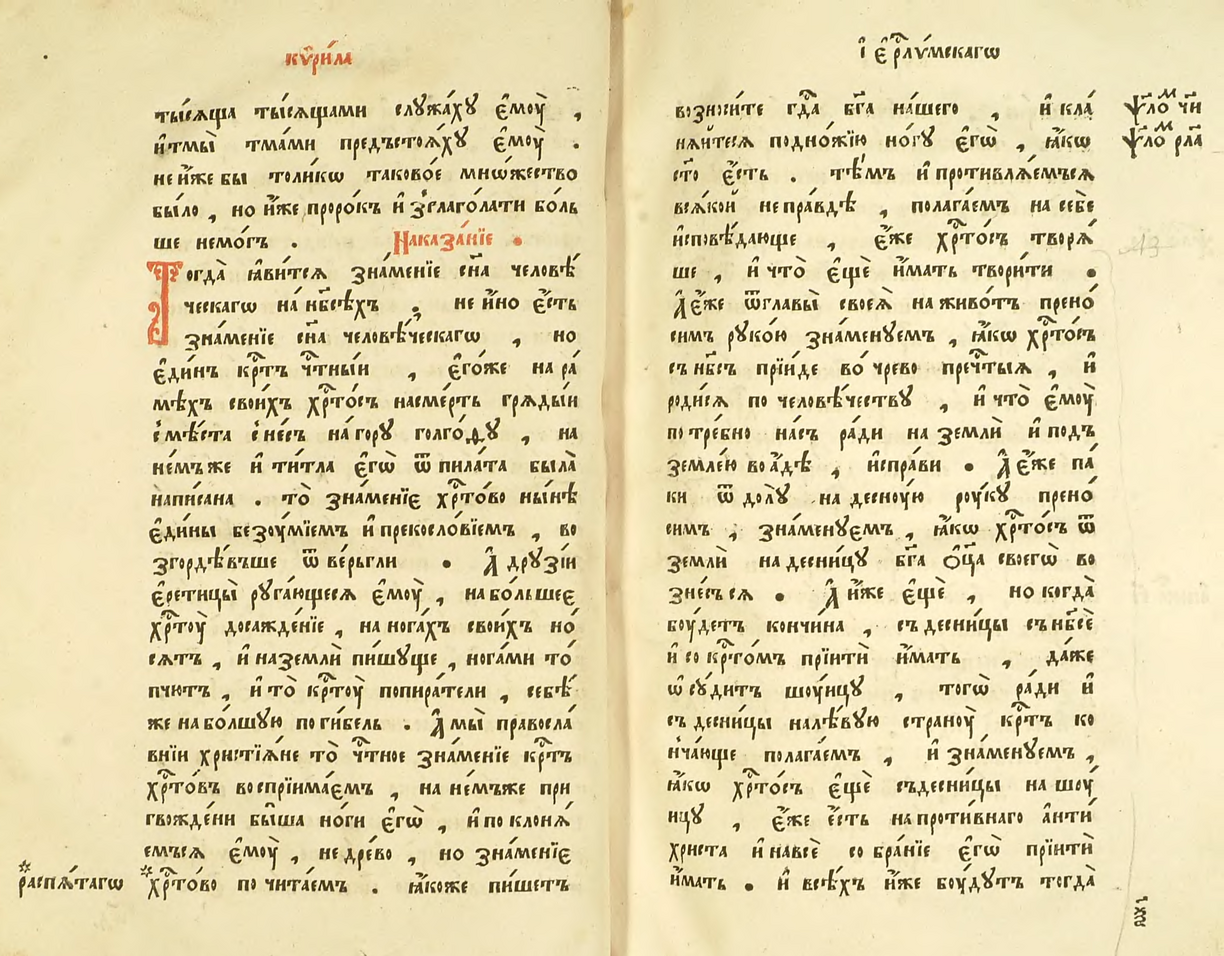 кѷри́ла
ты́сѧща ты́сѧщами слꙋжа́хꙋ є҆моу̀ ,
и҆тмы̀ тма́ми предъстоѧ́хꙋ є҆моу̀ .
не и҆́же бы толи́кѡ таково́е мнѡ́жество
было , но и҆́же проро́къ и҆ зглаго́лати бо́ль
ше немо́гъ . Наказа́нїе .
Тогда̀ ꙗ҆ви́тсѧ зна́менїе сн҃а человѣ́
ческагѡ на нб҃сѣ́хъ , не и҆́но є҆́сть
зна́менїе сн҃а человѣ́ческагѡ , но
є҆ди́нъ крⷭ҇тъ чⷭ҇тны́и , є҆го́же на ра́
мѣхъ свои́хъ хрⷭ҇то́съ насме́рть грѧды́и
с мѣ́ста снесъ на́ горꙋ голго́ѳꙋ , на
не́мъже и҆ ти́тла є҆гѡ̀ ѿ пила́та была̀
написана . то̀ зна́менїє хрⷭ҇то́во ны́нѣ
є҆ди́ны безоу́мїемъ и҆ прекосло́вїемъ , во
згордѣ́въше ѿ ве́рьгли . А҆ дрꙋзі́и
є҆ретицы̀ рꙋга́ющесѧ є҆моу̀ , на бо́льшеє
хрⷭ҇тоу̀ досажде́нїе , на нога́хъ свои́хъ но́
сѧтъ , и҆ на землѝ пи́шꙋще , нога́ми то́
пчютъ , и҆ то̀ крⷭ҇тоу̀ попира́тели , себѣ́
же на бо́лшꙋю поги́бель . А҆ мы̀ правосла́
внїи христїѧ́не то̀ чⷭ҇тное зна́менїе крⷭ҇тъ
хрⷭ҇то́въ воспрїима́ємъ , на не́мъже при
гвожде́ни бы́ша но́ги є҆гѡ̀ , и҆ поклонѧ́
емъсѧ є҆моу̀ , не дре́во , но зна́менїє
* хрⷭ҇то́во почита́емъ . ꙗ҆коже пи́шетъ
* распѧ́тагѡ
і҆ є҆рⷭ҇лѵмскагѡ
возноси́те гдⷭ҇а бг҃а на́шего , и҆ кла́
нѧ́итесѧ подно́жїю но́гꙋ є҆гѡ̀ , ꙗ҆́кѡ
ст҃о є҆́сть . тѣ́мъ и҆ противлѧ́емъсѧ
всѧ́кой непра́вдѣ , полага́ем на себе
и҆сповѣ́дающе , є҆́же хрⷭ҇то́съ творѧ́
ше , и҆ что̀ є҆щѐ и҆́мать твори́ти .
А҆ є҆́же ѿ главы̀ своеѧ̀ на живо́тъ прено́
симъ рꙋко́ю зна́менꙋемъ , ꙗ҆́кѡ хрⷭ҇то́съ
съ нб҃съ прїи́де во́ чрево преч́ⷭ҇тыѧ , и҆
роди́сѧ по человѣ́честву , и҆ что̀ є҆моу̀
потре́бно на́съ ра́ди на землѝ и҆ подъ
земле́ю во а҆́дѣ , и҆спра́ви . А҆ є҆́же па́
ки ѿ до́лꙋ на десно́ую роу́кꙋ прено́
симъ , зна́менꙋемъ , ꙗ҆́кѡ хрⷭ҇то́съ ѿ
землѝ на десни́цꙋ бг҃а ѻ҆ц҃а своегѡ̀ во
зне́съсѧ . А҆ и҆́же є҆щѐ , но когда̀
боу́детъ кончи́на , съ десни́цы съ нб҃сѐ
и҆ со крⷭ҇то́мъ прїитѝ и҆́мать , да́же
ѡ҆сꙋ́дитъ шоу́ицꙋ , тогѡ̀ ра́ди и҆
съ десни́цы налѣ́вꙋю странꙋ̀ крⷭ҇тъ ко
нча́юще полага́емъ , и҆ зна́менꙋемъ ,
ꙗ҆́кѡ хрⷭ҇то́съ є҆щѐ съдесни́цы на шоу́
ицꙋ , є҆́же є҆́сть на проти́внаго а҆нти́
христа и҆ навсѐ собра́нїе є҆гѡ̀ прїитѝ
и҆́мать . и҆ всѣ́хъ и҆́же боу́дꙋтъ тогда̀
ѱло́ⷨ чи
ѱло́ⷨ рла